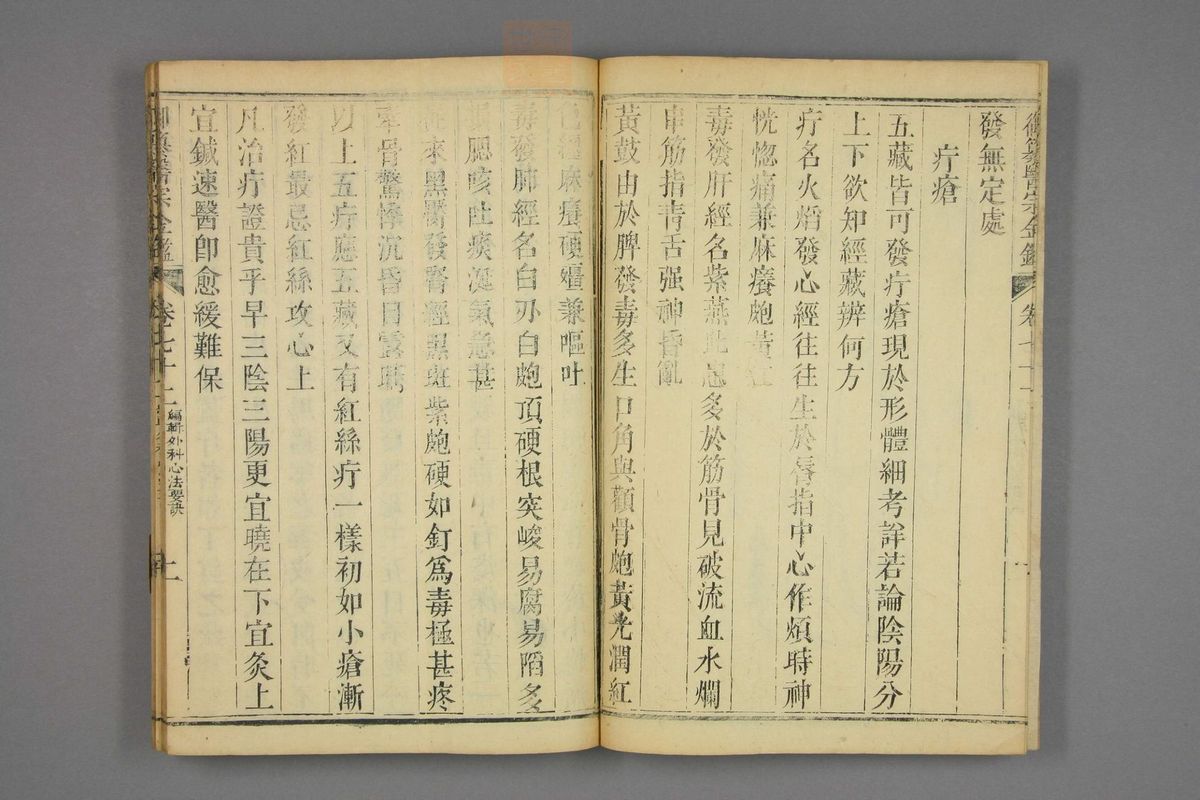 御纂醫宗金鑑 卷七十二
發無定處
疔瘡
五藏皆可發疔瘡現於形體細考詳若論陰陽分
上下欲知經藏辨何方
疔名火焰發心經往往生於唇指中心作煩時神
恍惚痛兼麻癢皰黃紅
毒發肝經名紫燕此患多於筋骨見破流血水爛
串筋指青舌强神昏亂
黃鼓由於脾發毒多生口角與顴骨皰黃光潤紅
色纏麻癢硬殭兼嘔吐
毒發肺經名白刃白皰頂硬根突峻易腐易陷多
損腮咳吐痰涎氣急甚
從來黑靨發腎經黑斑紫皰硬如釘爲毒極甚疼
牽骨驚悸沉昏目露睛
以上五疔應五藏又有紅絲疔一樣初如小瘡漸
發紅最忌紅絲攻心上
凡治疔證貴乎早三陰三陽更宜曉在下宜灸上
宜鍼速醫卽愈緩難保
御纂醫宗金鑑 卷七十二 編輯外科心法要訣 二